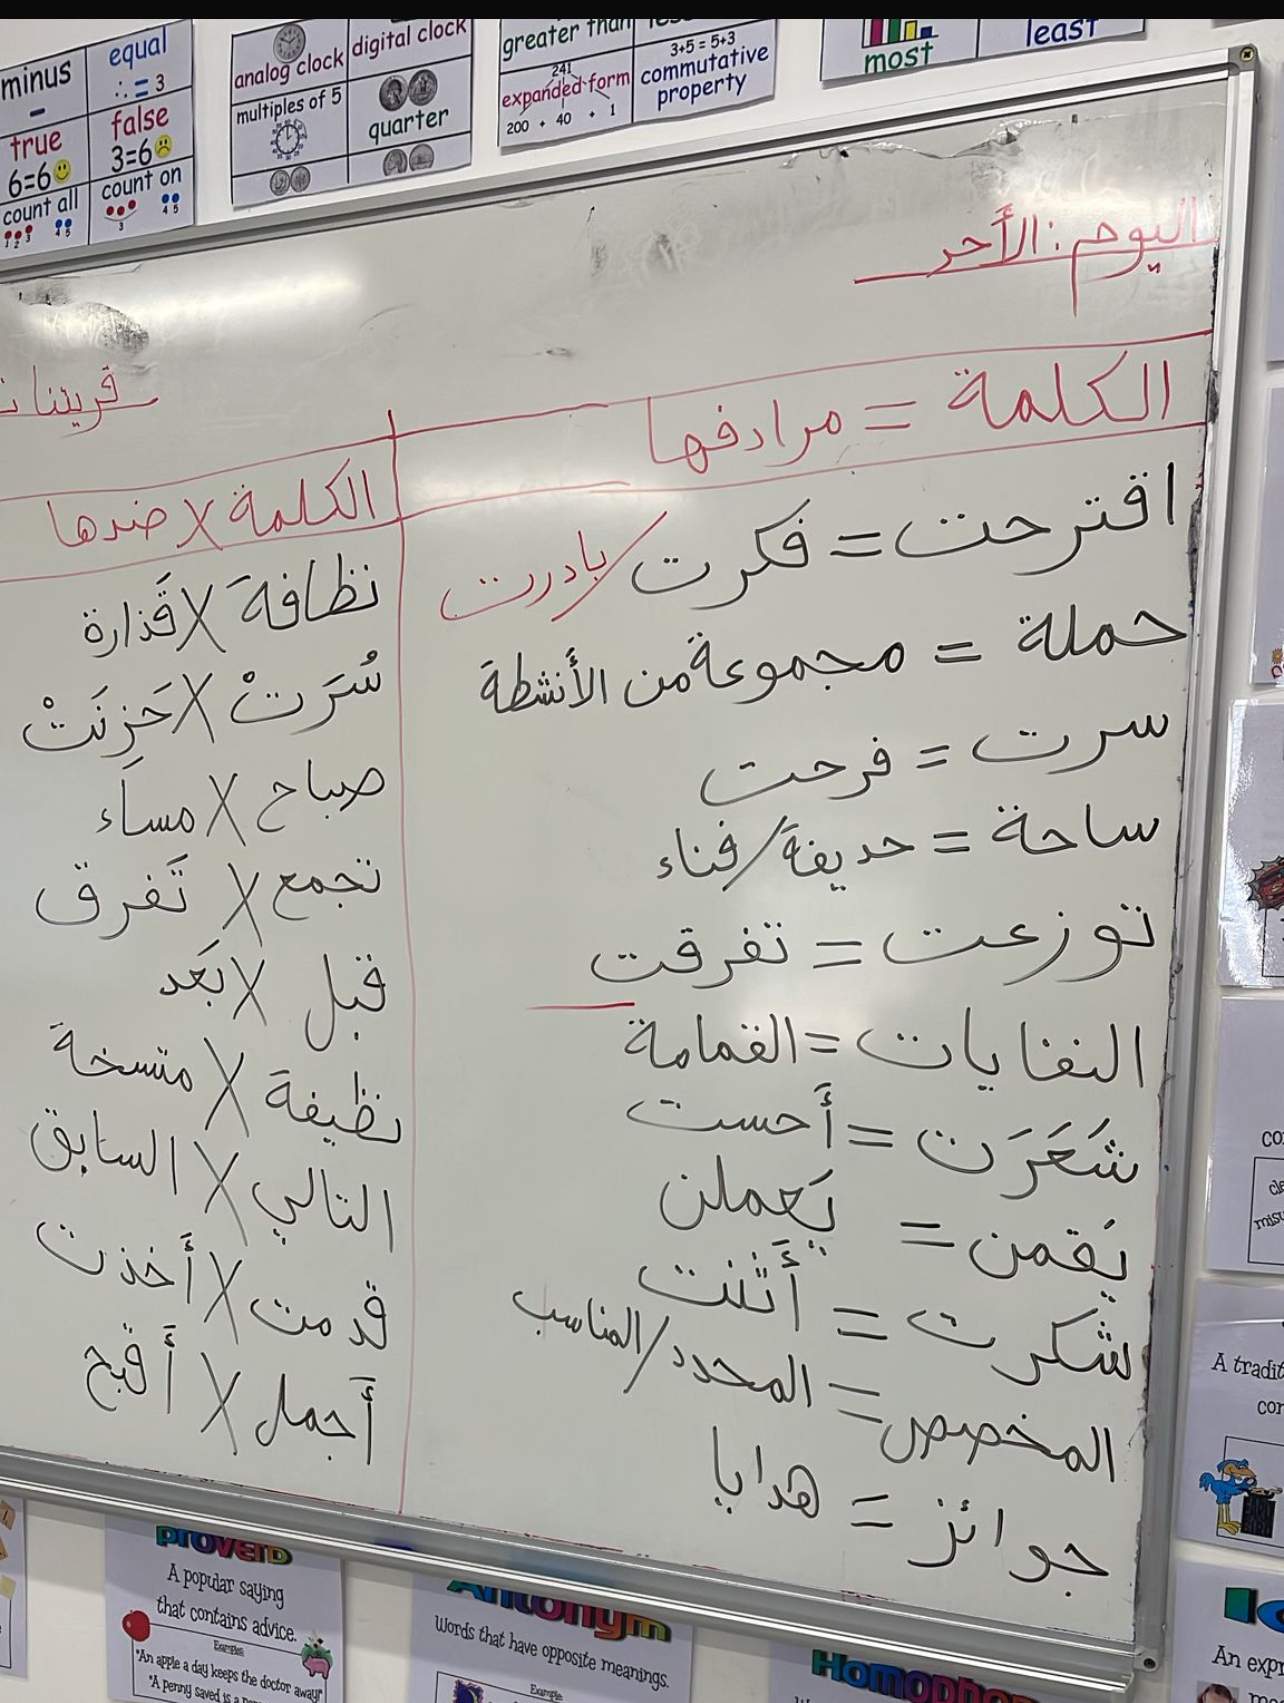 minus
-
equal
∴ = 3
true
6=6
false
3=6
count all
1 2 3 4 5
count on
3 4 5
analog clock
digital clock
multiples of 5
quarter
greater than
241
expanded form
200 + 40 + 1
3+5 = 5+3
commutative
property
most
least
اليوم: الأحد
الكلمة = مرادفها
اقترحت = فكرت / بادرت
حملة = مجموعة من الأنشطة
سرت = فرحت
ساحة = حديقة / فناء
توزعت = تفرقت
النفايات = القمامة
شَعَرَت = أَحست
يَقمن = يَعملن
شكرت = أَثنت
المخصص = المحدد / المناسب
جوائز = هدايا
الكلمة X ضدها
نظافة X قَذارة
سُرَتْ X حَزِنَتْ
صباح X مساَء
تجمع X تَفرق
قبل X بَعد
نظيفة X متسخة
التالي X السابق
قدمت X أَخذت
أَجمل X أَقبح
proverb
A popular saying
that contains advice.
Examples
"An apple a day keeps the doctor away!"
"A penny saved is a
Antonym
Words that have opposite meanings.
Example
Homophon
A tradit
cor
An expr